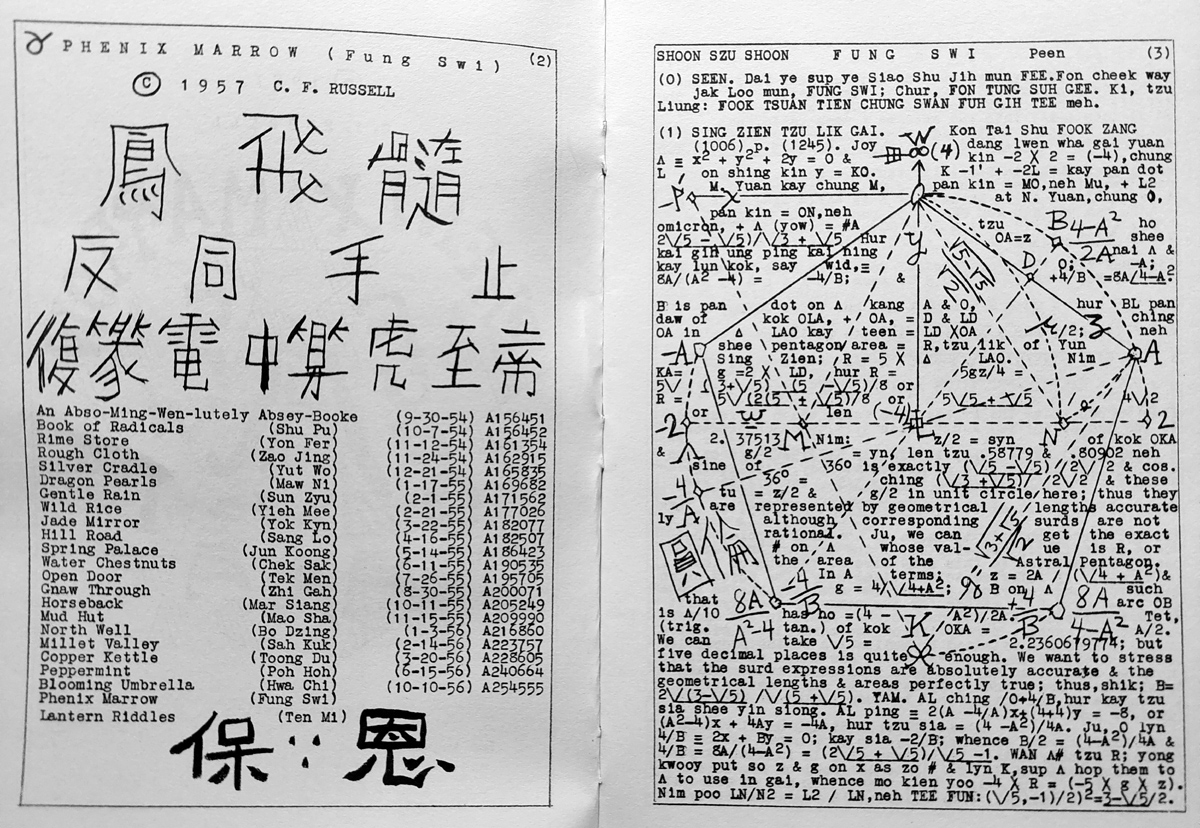 PHENIX MARROW (Fung Swi) (2)
© 1957 C. F. RUSSELL
鳳 飛 髓
反 同 手 止
復 篆 電 中 算 虎 至 帝
An Abso-Ming-Wen-lutely Absey-Booke (9-30-54) A156451
Book of Radicals (Shu Pu) (10-7-54) A156452
Rime Store (Yon Fer) (11-12-54) A161354
Rough Cloth (Zao Jing) (11-24-54) A162915
Silver Cradle (Yut Wo) (12-21-54) A165835
Dragon Pearls (Maw Ni) (1-17-55) A169682
Gentle Rain (Sun Zyu) (2-1-55) A171562
Wild Rice (Yieh Mee) (2-21-55) A177026
Jade Mirror (Yok Kyn) (3-22-55) A182077
Hill Road (Sang Lo) (4-16-55) A182507
Spring Palace (Jun Koong) (5-14-55) A186423
Water Chestnuts (Chek Sak) (6-11-55) A190535
Open Door (Tek Men) (7-26-55) A195705
Gnaw Through (Zhi Gah) (8-30-55) A200071
Horseback (Mar Siang) (10-11-55) A205249
Mud Hut (Mao Sha) (11-15-55) A209990
North Well (Bo Dzing) (1-3-56) A216860
Millet Valley (Sah Kuk) (2-14-56) A223757
Copper Kettle (Toong Du) (3-20-56) A228605
Peppermint (Poh Hoh) (6-15-56) A240664
Blooming Umbrella (Hwa Chi) (10-10-56) A254555
Phenix Marrow (Fung Swi)
Lantern Riddles (Ten Mi)
保 恩
SHOON SZU SHOON FUNG SWI Peen (3)
(0) SEEN. Dai ye sup ye Siao Shu Jih mun FEE.Fon cheek way
jak Loo mun, FUNG SWI; Chur, FON TUNG SUH GEE. Ki, tzu
Liung: FOOK TSUAN TIEN CHUNG SWAN FUH GIH TEE meh.
(1) SING ZIEN TZU LIK GAI. W Kon Tai Shu FOOK ZANG
(1006) p. (1245). Joy (4) dang lwen wha gai yuan
Λ ≡ x² + y² + 2y = 0 & kin -2 X 2 = (-4),chung
L on shing kin y = KO. K -1' + -2L = kay pan dot
M, Yuan kay chung M, pan kin = MO,neh Mu, + L2
-P x at N. Yuan,chung O,
pan kin = ON,neh
omicron, + Λ (yow) = #A tzu B 4-A² ho
2√5 - √5)/√3 + √5 Hur y OA=z 2A shee
kai gih ung ping kai hing D nai Λ &
kay lun kok, say Wid,≡ O; -A;
8A/(A² -4) = -4/B; & +4/B =8A/4-A².
B is pan dot on Λ kang A & O, hur BL pan
daw of kok OLA, + OA, = D & LD ching
OA in Δ LAO kay teen = LD XOA /2; neh
-A shee pentagon area = R,tzu lik of Yun A
Sing Zien; R = 5 X Δ LAO. Nim
KA= g =2 X LD, hur R = 5gz/4 =
2 or len (-4) 2
2.37513 M Nim: z/2 = syn N of kok OKA
& g/2 = yn, len tzu .58779 & .80902 neh
sine of 36° is exactly (√5 -√5)/2√2 & cos.
36° = ching (√3 +√5)/2√2 & these
tu = z/2 & g/2 in unit circle here; thus they
are represented by geometrical lengths accurate
ly although corresponding surds are not
rational. Ju, we can get the exact
# on Λ whose val- ue is R, or
the area of the Astral Pentagon.
In A terms; z = 2A (√4 + A²)&
g = 4/√4+A²; B on Λ such
that 8A -4 +4 8A arc OB
is Λ/10 has ho =(4 - A²)/2A. Tet,
(trig. A²-4 tan.) of kok K OKA = B 4-A² A/2.
We can take √5 = 2.2360679774; but
five decimal places is quite enough. We want to stress
that the surd expressions are absolutely accurate & the
geometrical lengths & areas perfectly true; thus,shik; B=
2√(3-√5) /√(5 +√5). YAM. AL ching /0+4/B,hur kay tzu
sia shee yin siong. AL ping ≡ 2(A -4/A)x+(4+4)y = -8, or
(A²-4)x + 4Ay = -4A, hur tzu sia = (4 -A²)/4A. Ju, O lyn
4/B ≡ 2x + By = 0; kay sia -2/B; whence B/2 = (4-A²)/4A &
4/B = 8A/(4-A²) = (2√5 + √5)/√5 -1. WAN A# tzu R; yong
kwooy put so z & g on x as zo # & lyn K,sup Λ hop them to
Λ to use in gai, whence mo kien yoo -4 X R = (-5 X g X z).
Nim poo LN/N2 = L2 / LN,neh TEE FUN:(√5,-1)/2)²=3-√5/2.